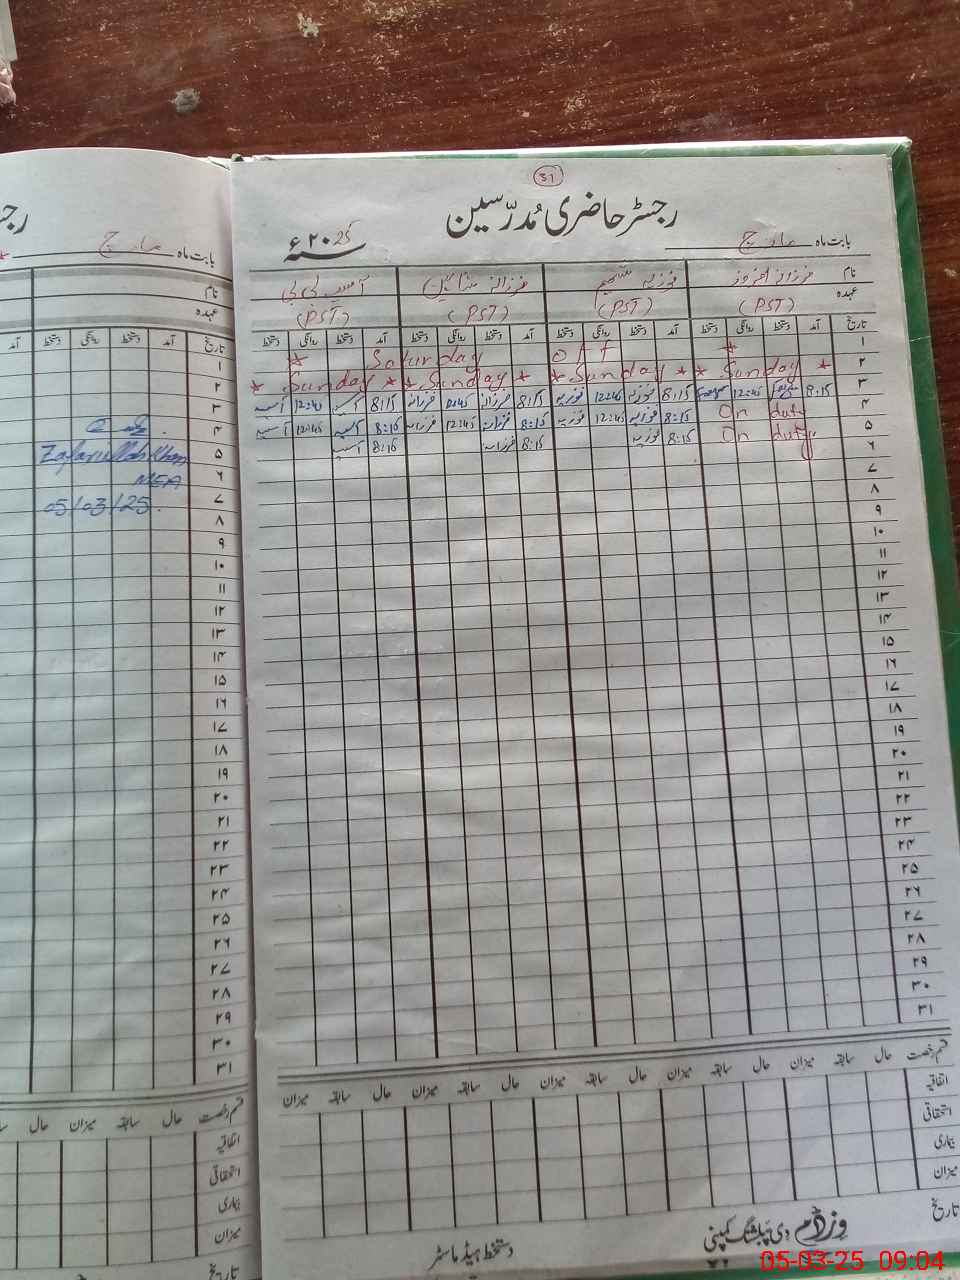 31
رجسٹر حاضری مُدرّسین
بابت ماہ مارچ سنہ ۲۰25ء
نام فرزانہ شاہین آسیہ بی بی
عہدہ (PST) (PST) (PST) (PST)
تاریخ آمد دستخط روانگی دستخط آمد دستخط روانگی دستخط آمد دستخط روانگی دستخط آمد دستخط روانگی دستخط
۱ * Saturday off *
۲ * Sunday * * Sunday * * Sunday * * Sunday *
۳ 8:15 12:45 8:15 فوزیہ 12:45 فوزیہ 8:15 فرزانہ 12:45 فرزانہ 8:15 آسیہ 12:45 آسیہ
۴ On duty 8:15 فوزیہ 12:45 فوزیہ 8:15 فرزانہ 12:45 فرزانہ 8:15 آسیہ 12:45 آسیہ
۵ On duty 8:15 فوزیہ 8:15 فرزانہ 8:15 آسیہ
۶
۷
۸
۹
۱۰
۱۱
۱۲
۱۳
۱۴
۱۵
۱۶
۱۷
۱۸
۱۹
۲۰
۲۱
۲۲
۲۳
۲۴
۲۵
۲۶
۲۷
۲۸
۲۹
۳۰
۳۱
قسم رخصت حال سابقہ میزان حال سابقہ میزان حال سابقہ میزان حال سابقہ میزان
اتفاقیہ
استحقاقی
بیماری
میزان
تاریخ
دستخط ہیڈ ماسٹر
وزڈم دی پبلشنگ کمپنی
بابت ماہ مارچ
نام
عہدہ
تاریخ آمد دستخط روانگی دستخط آمد
۱
۲
۳
۴
۵ Zafarullah Khan
۶ MEA
۷ 05/03/25.
۸
۹
۱۰
۱۱
۱۲
۱۳
۱۴
۱۵
۱۶
۱۷
۱۸
۱۹
۲۰
۲۱
۲۲
۲۳
۲۴
۲۵
۲۶
۲۷
۲۸
۲۹
۳۰
۳۱
قسم رخصت حال سابقہ میزان حال
اتفاقیہ
استحقاقی
بیماری
میزان
تاریخ
05-03-25 09:04